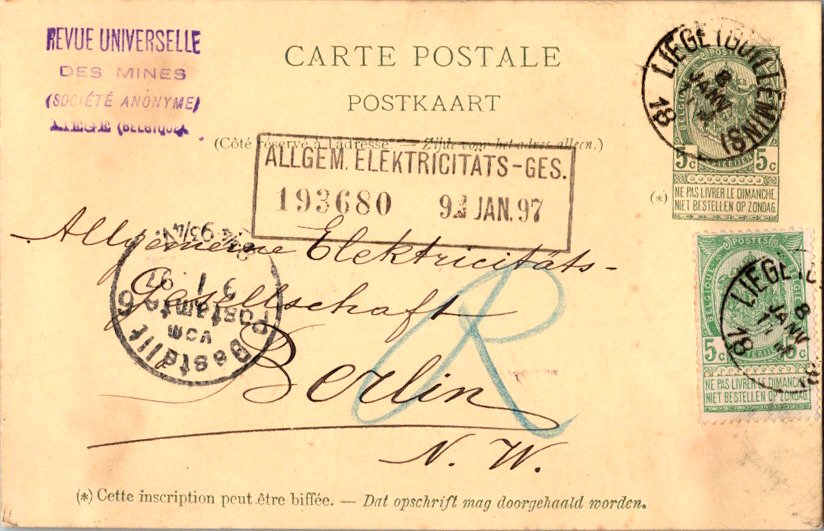 REVUE UNIVERSELLE
DES MINES
(SOCIÉTÉ ANONYME)
LIEGE (BELGIQUE)
CARTE POSTALE
POSTKAART
(Côté réservé à l'adresse. — Zijde voor het adres alleen.)
LIEGE (GUILLEMINS)
8
JANV
18
POSTES
BELGIQUE
5c 5c
(*) NE PAS LIVRER LE DIMANCHE
NIET BESTELLEN OP ZONDAG
ALLGEM. ELEKTRICITÄTS-GES.
193680 9 JAN. 97
Allgemeine Elektricitäts-
Gesellschaft
Berlin
N. W.
R
Bestellt
vom
Postamte 6
9 1
97
LIEGE
8
JANV
18 18
POSTES
BELGIQUE
5c c
NE PAS LIVRER LE DIMANCHE
NIET BESTELLEN OP ZONDAG
(*) Cette inscription peut être biffée. — Dat opschrift mag doorgehaald worden.